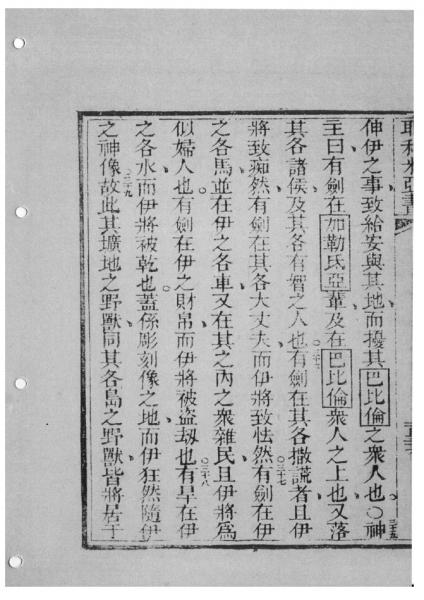 伸伊之事致給安與其地而擾其巴比倫之衆人也○神
主曰有劍在加勒氏亞輩及在巴比倫衆人之上也又落
其各諸侯及其各有智之人也有劍在其各撒謊者且伊
將致痴然有劍在其各大丈夫而伊將致怯然有劍在伊
之各馬並在伊之各車又在其之內之衆雜民且伊將爲
似婦人也有劍在伊之財帛而伊將被盜刼也有旱在伊
之各水而伊將被乾也蓋係彫刻像之地而伊狂然隨伊
之神像故此其壙地之野獸同其各島之野獸皆將居于